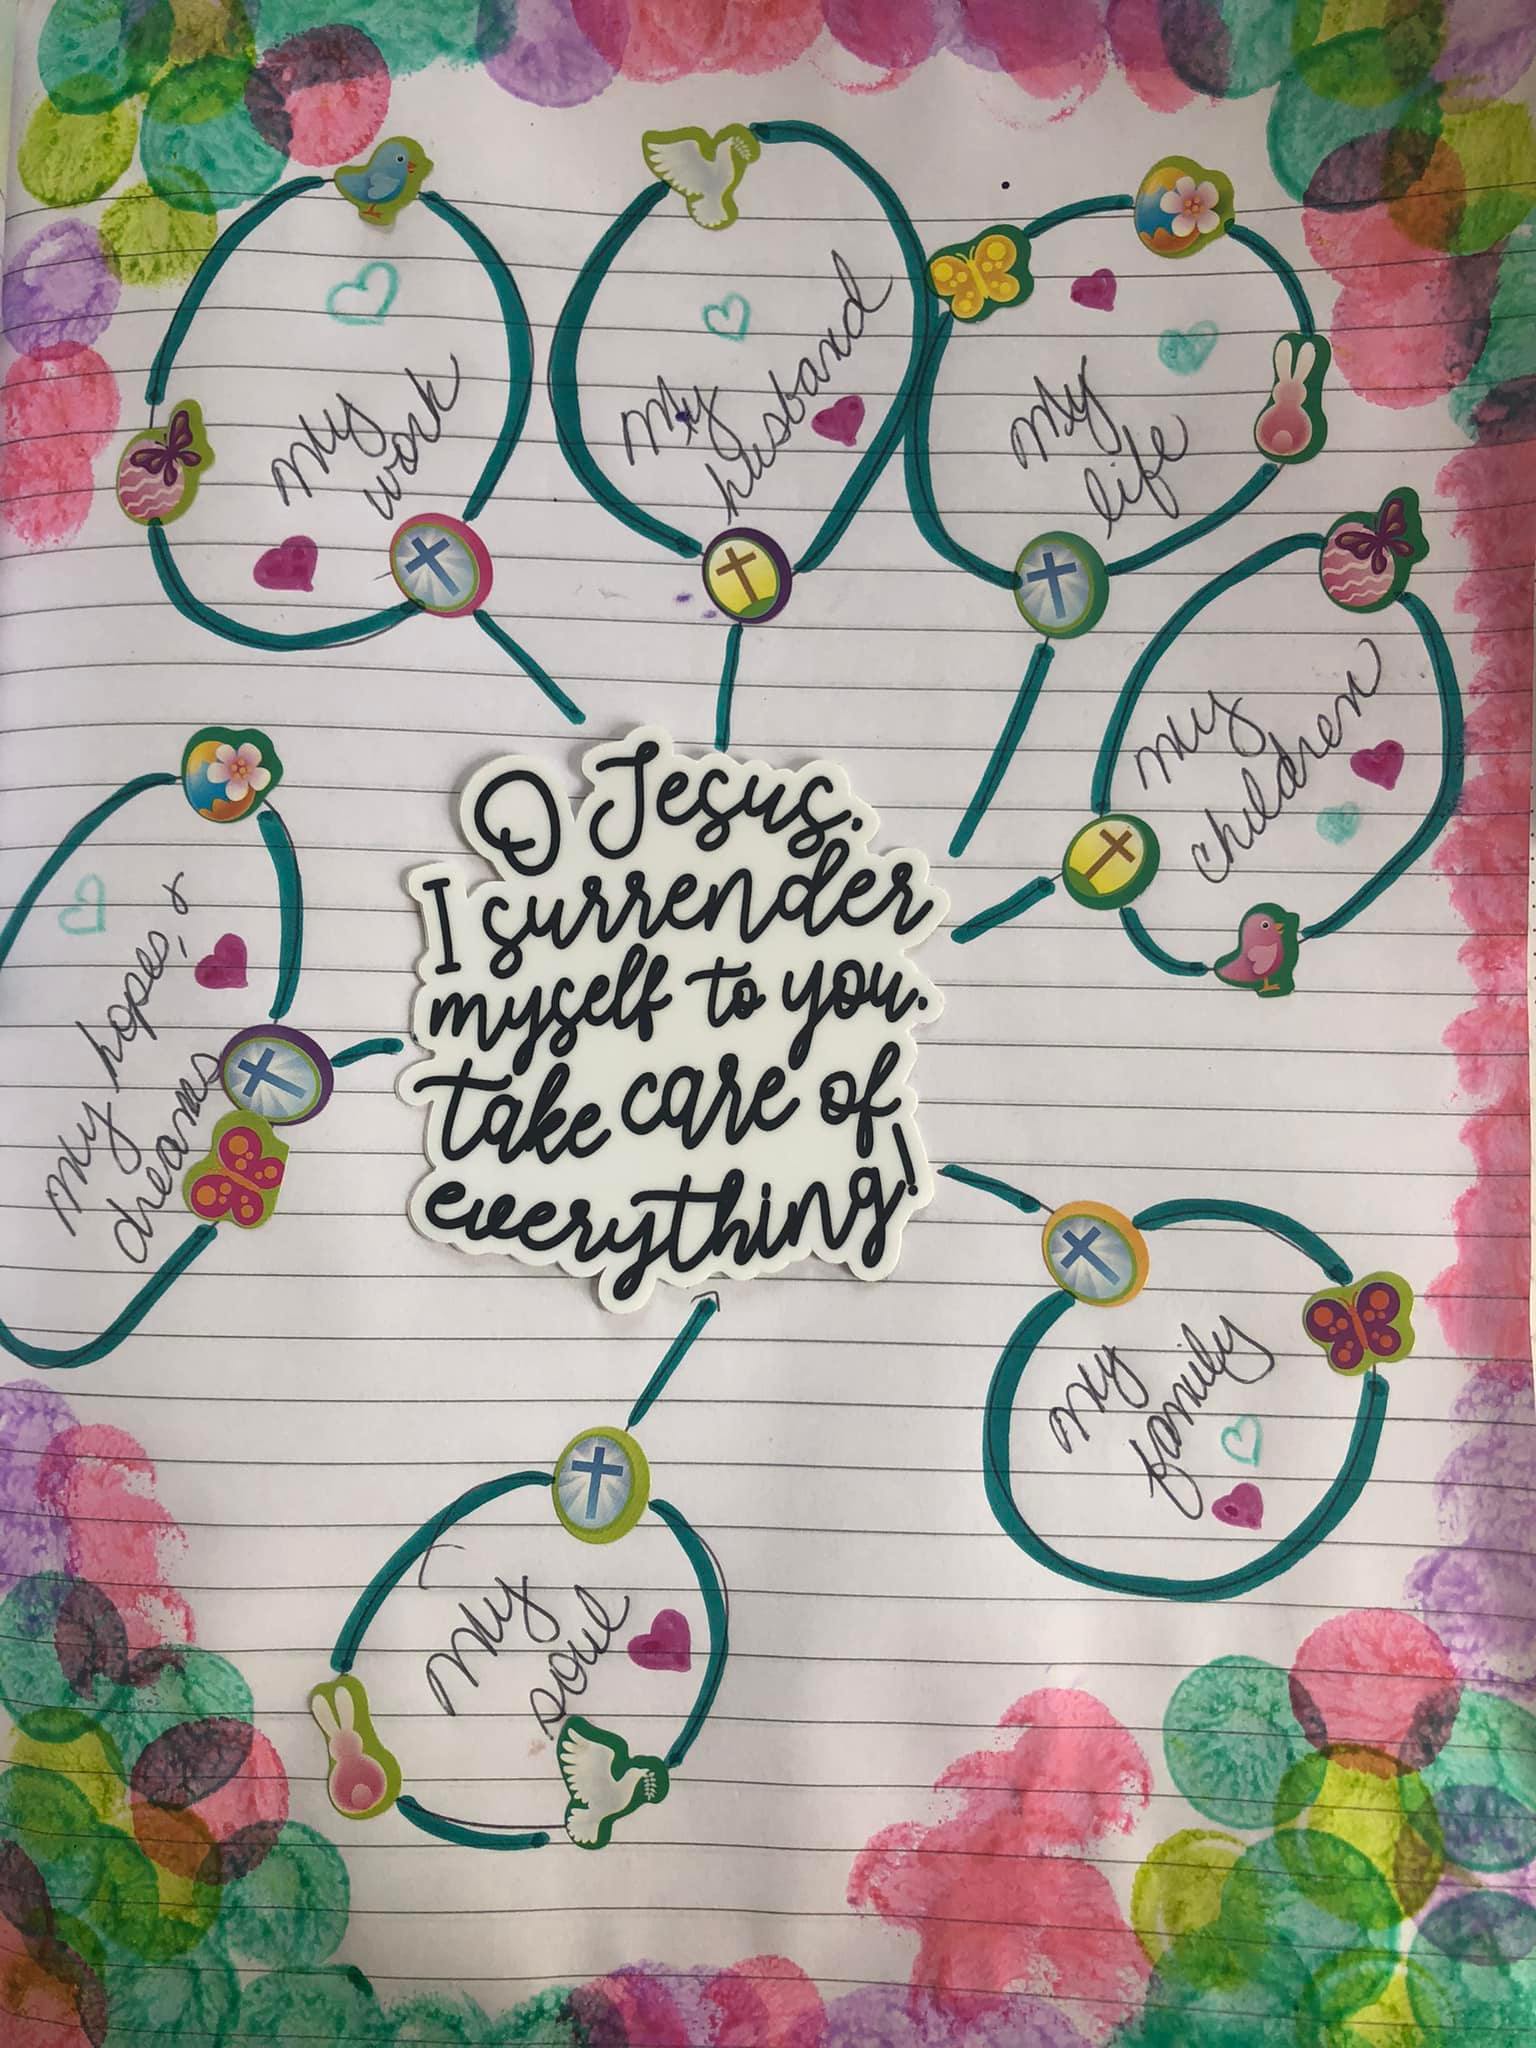 My
work
My
husband
My
life
My
children
O Jesus.
I surrender
myself to you.
take care of
everything!
My hopes, &
dreams
My
family
My
soul